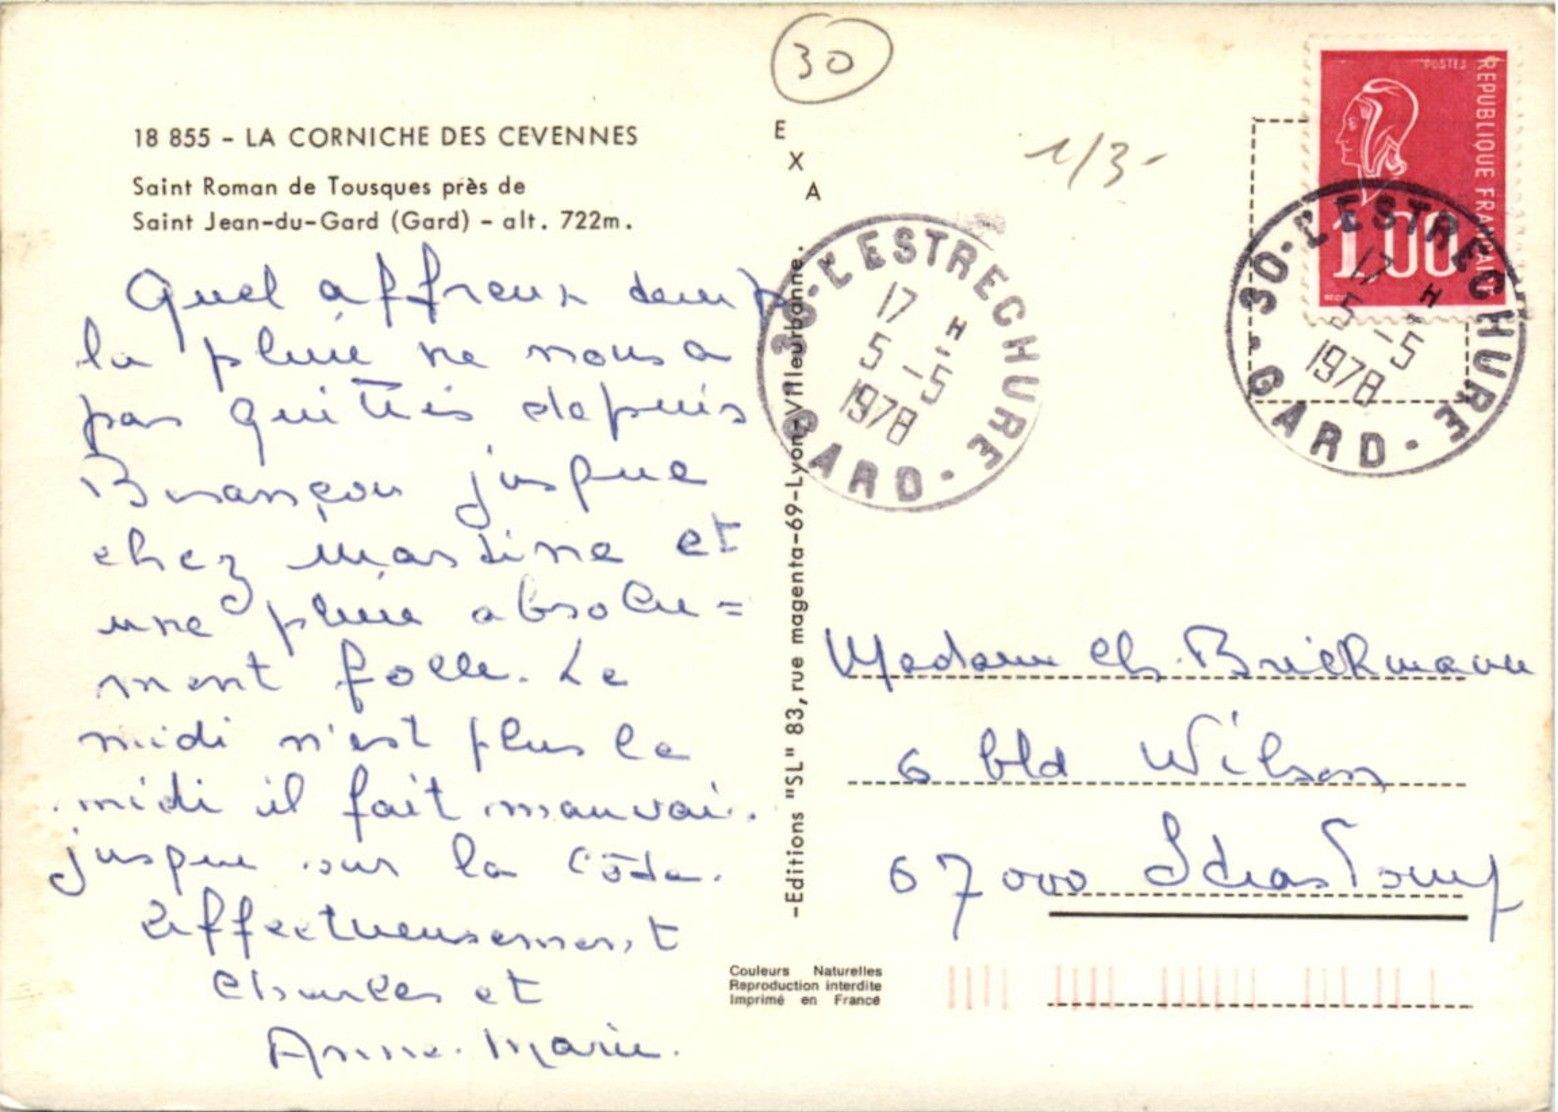 18 855 - LA CORNICHE DES CEVENNES
Saint Roman de Tousques près de
Saint Jean-du-Gard (Gard) - alt. 722m.
Quel affreux temps
la pluie ne nous a
pas quittés depuis
Besançon jusque
chez Martine et
une pluie absolu=
ment folle. Le
midi n'est plus le
midi il fait mauvais
jusque sur la Côte.
Affectueusement
Charles et
Anne-Marie.
30
EXA
1/3-
-Editions "SL" 83, rue magenta-69-Lyon-Villeurbanne.
30-L'ESTRECHURE
17 H
5-5
1978
GARD
POSTES
REPUBLIQUE FRANCAISE
1,00
30-L'ESTRECHURE
17 H
5-5
1978
GARD
Madame Ch. Brickmann
6 bld Wilson
67000 Strasbourg
Couleurs Naturelles
Reproduction interdite
Imprimé en France